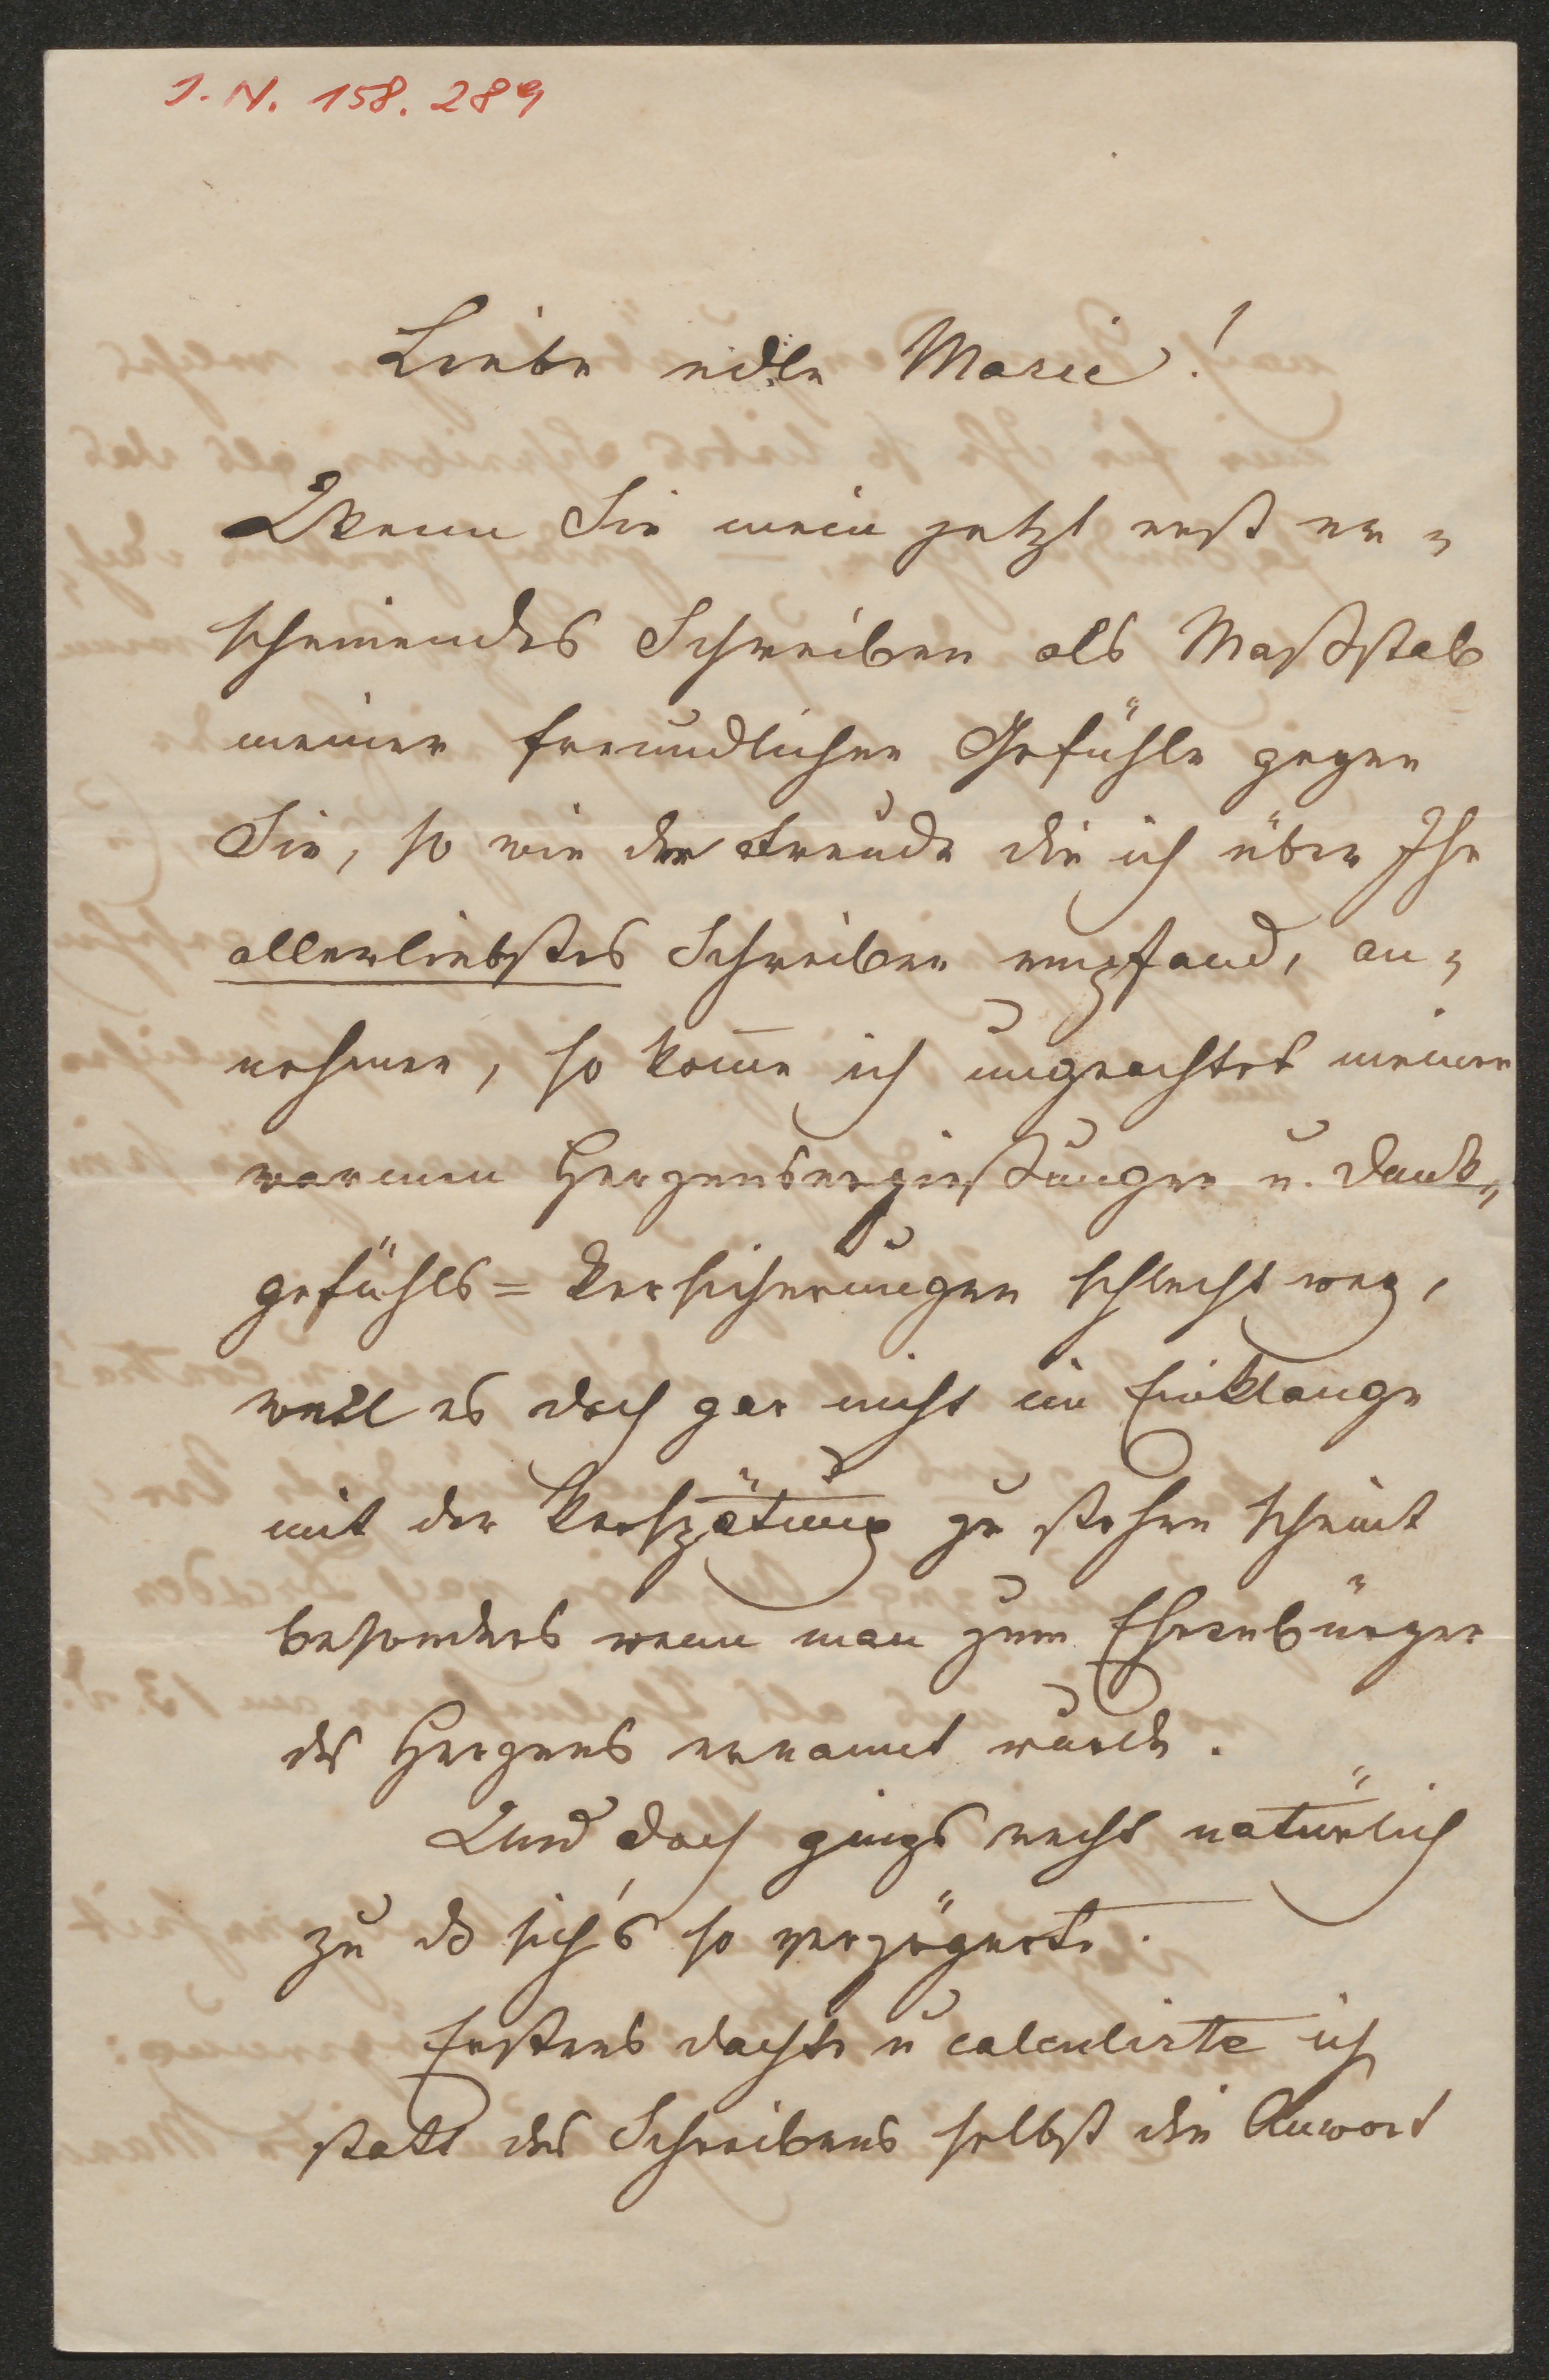 I. N. 158.289
Liebe edle Marie!
Wenn Sie mein jetzt erst er-
scheinendes Schreiben als Maßstab
meiner freundlichen Gefühle gegen
Sie, so wie der Freude die ich über Ihr
allerliebstes Schreiben empfand, an-
nehmen, so kom̅e ich ungeachtet meiner
warmen Herzensergießungen u. Dank-
gefühls=Versicherungen schlecht weg,
weil es doch gar nicht im Einklange
mit der Verspätung zu stehen scheint
besonders wenn man zum Ehrenbürger
des Herzens ernannt wurde.
Und doch gings recht natürlich
zu dß sich's so verzögerte.
Erstens dachte u calculirte ich
statt des Schreibens selbst die Anwort